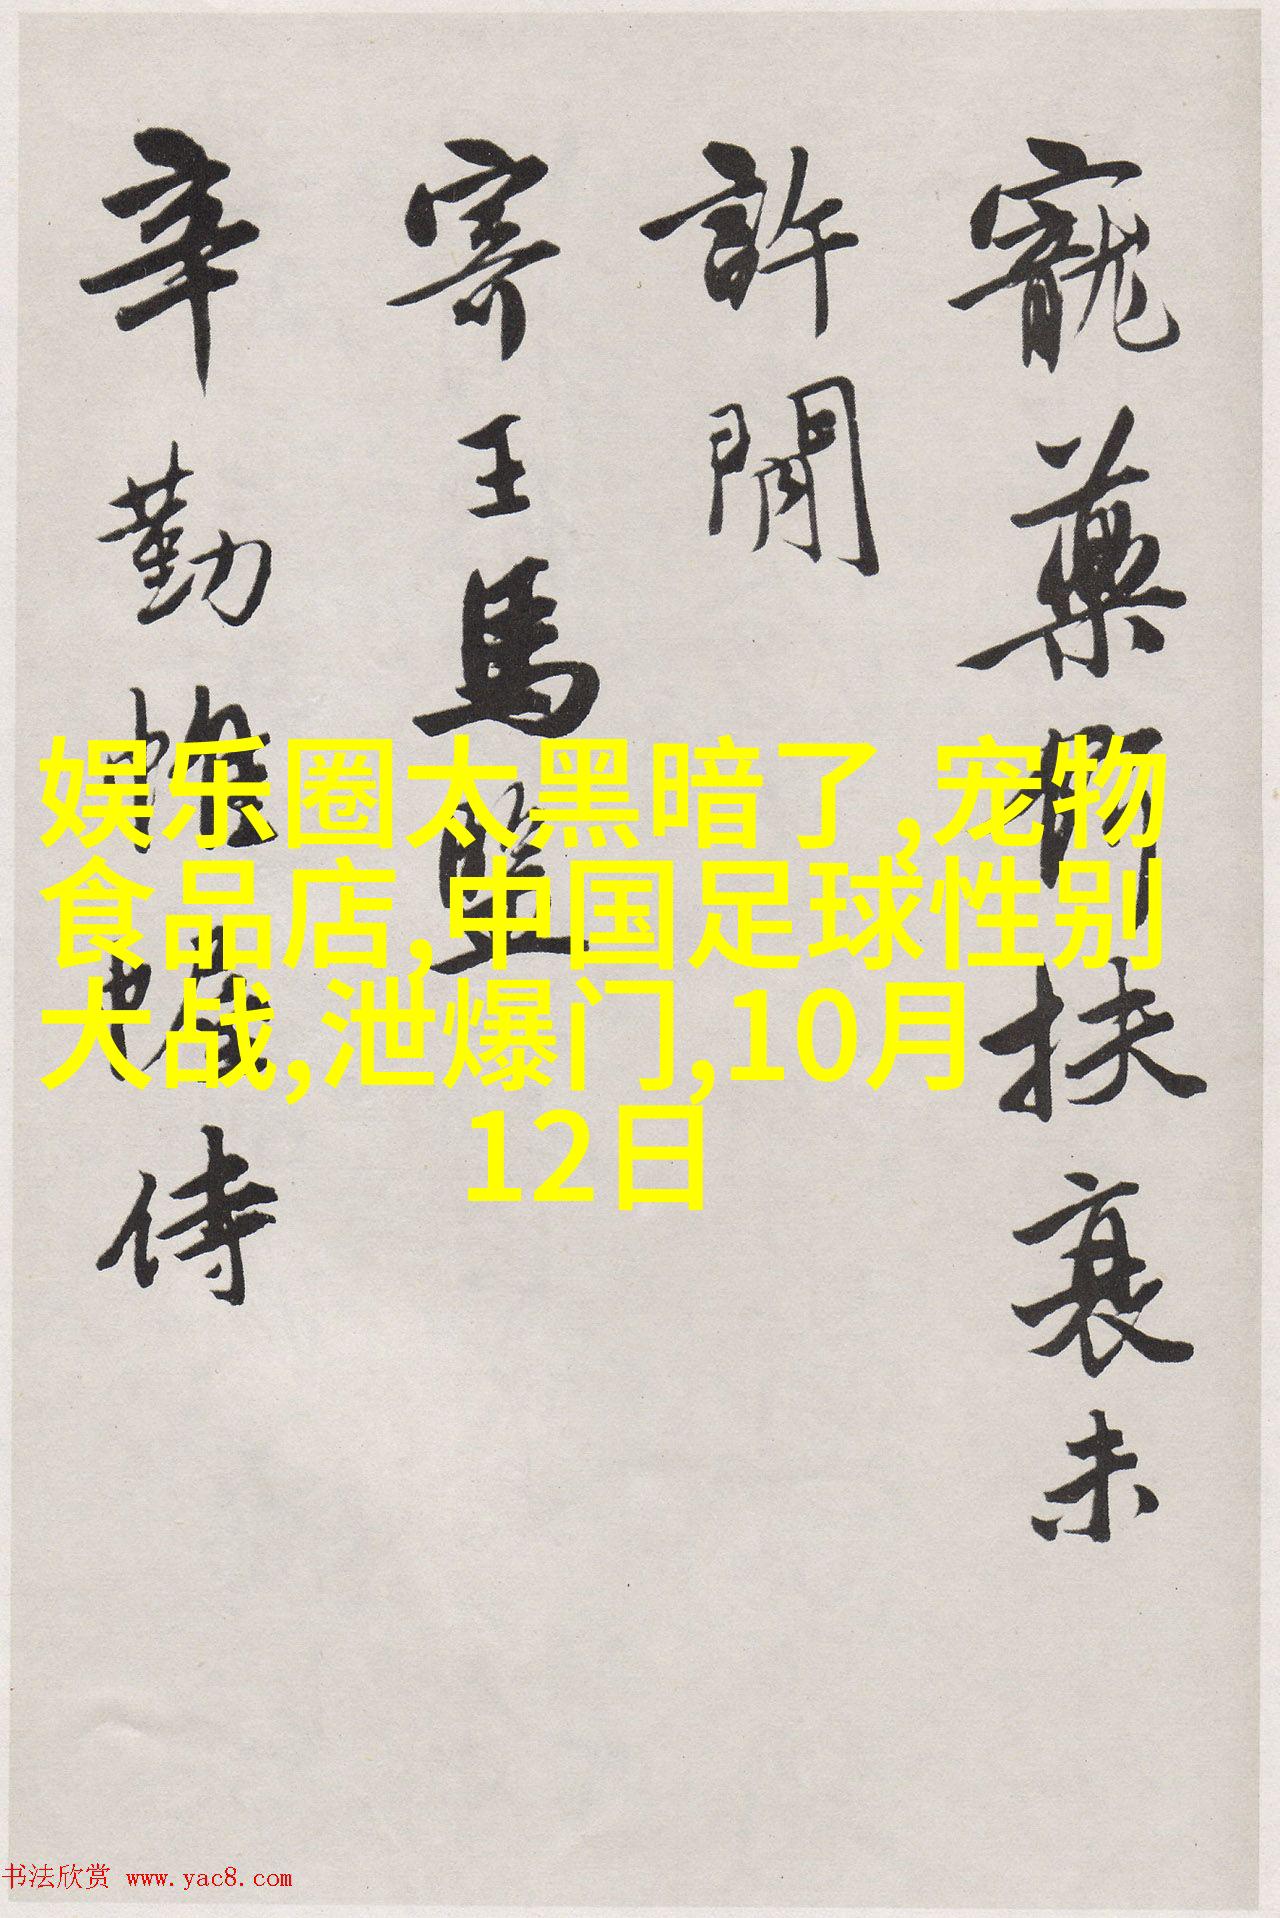 寵藥即扶衰未
許閒
寄王馬監
辛勤帷幄侍
娱乐圈太黑暗了,宠物
食品店,中国足球性别
大战,泄爆门,10月
12日
书法欣赏 www.yac8.com